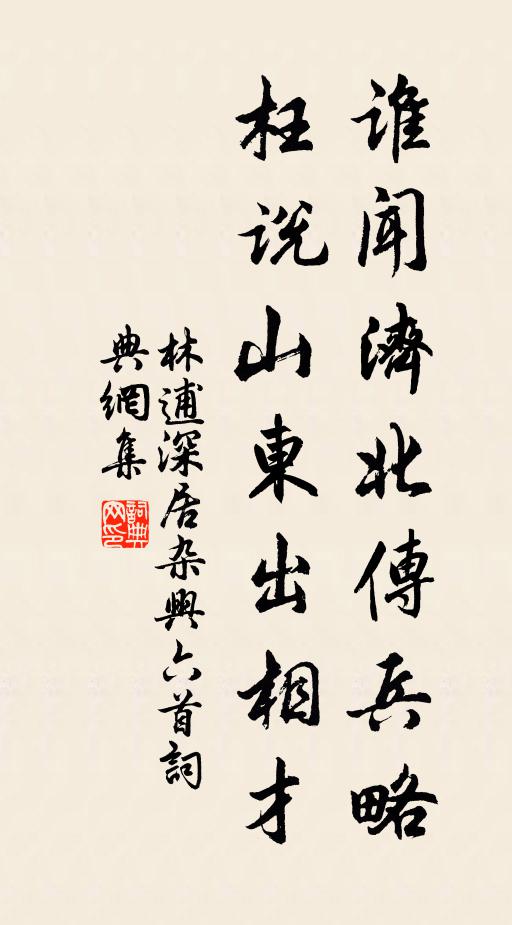 谁闻濟北傳兵略
枉说山東出相才
林逋深居杂興六首詞
典網集
詞典网印